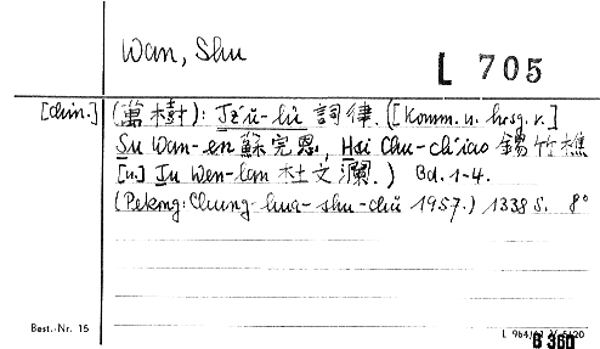 Wan, Shu
L 705
[chin.] (萬樹): Tz'ŭ-lü 詞律. ([Komm. u. hrsg. v.]
Su Wan-en 蘇完恩, Hsi Chu-ch'iao 錫竹樵
[u.] Tu Wen-lan 杜文瀾.) Bd. 1-4.
(Peking: Chung-hua-shu-chü 1957.) 1338 S. 8°
Best.-Nr. 15
B 360